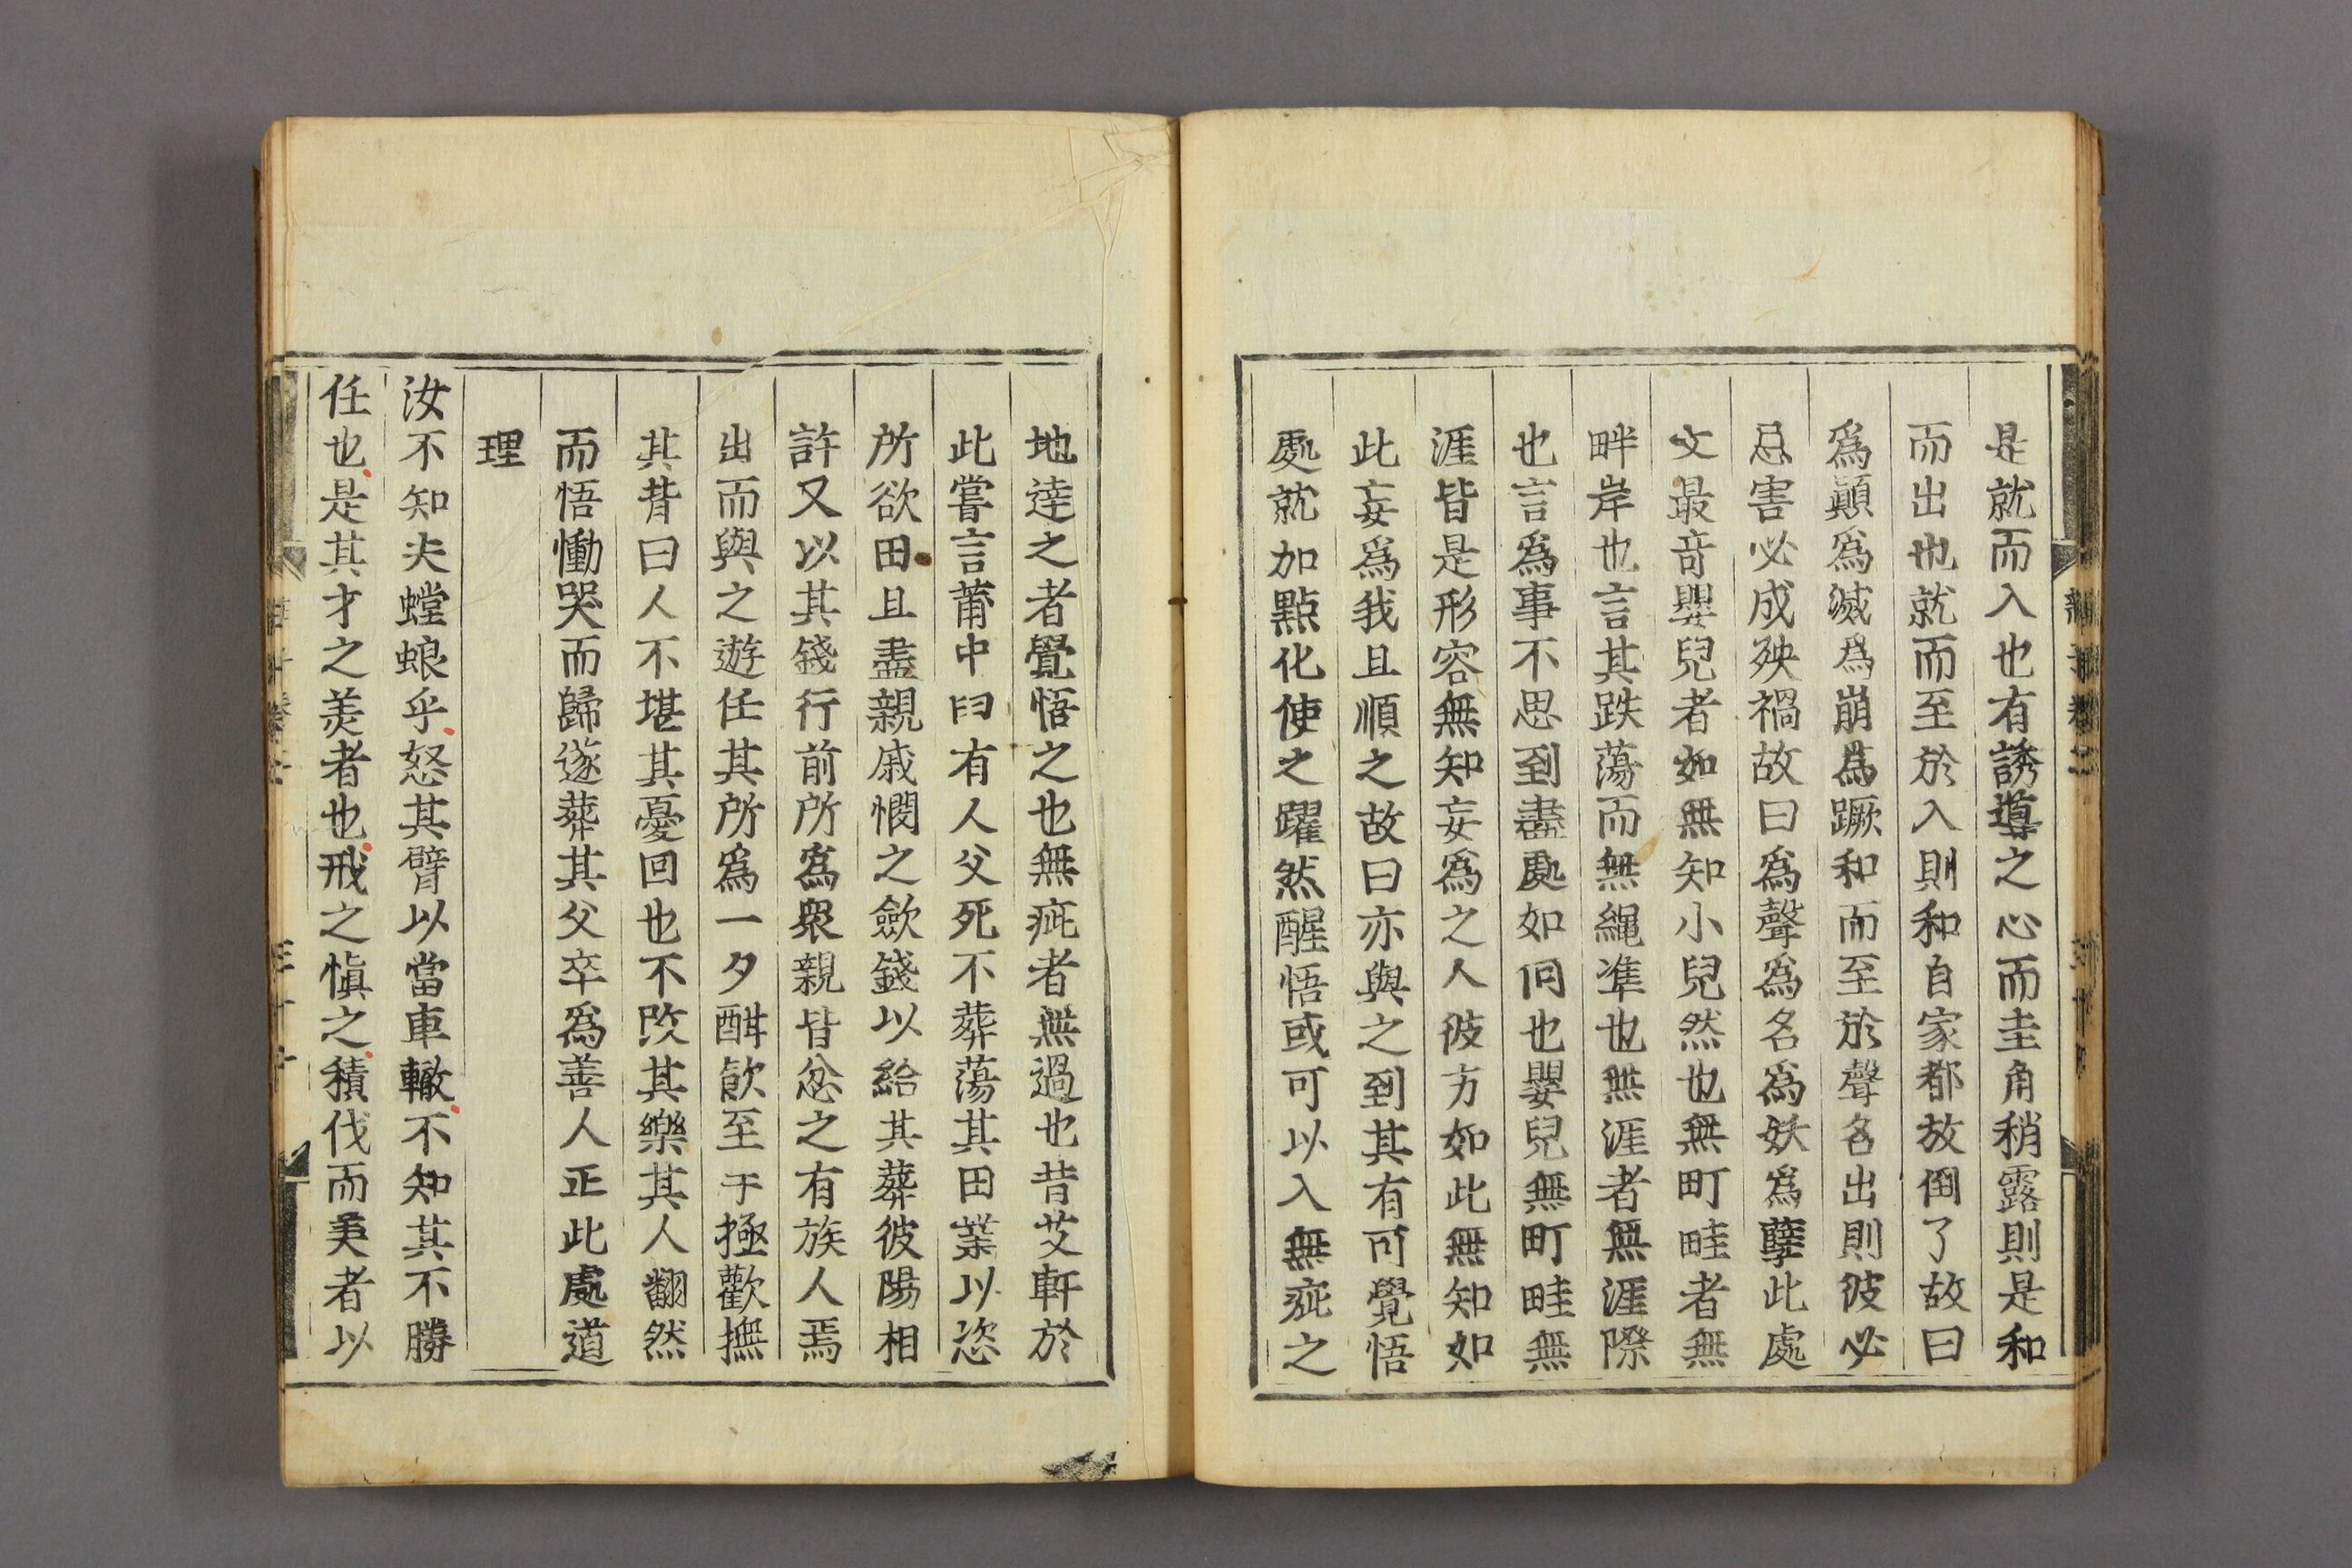 是就而入也有誘導之心而圭角稍露則是和
而出也就而至於入則和自家都放倒了故曰
爲顚爲滅爲崩爲蹶和而至於聲名出則彼必
忌害必成殃禍故曰爲聲爲名爲妖爲孽此處
文最竒嬰兒者如無知小兒然也無町畦者無
畔岸也言其跌蕩而無繩準也無涯者無涯際
也言爲事不思到盡處如何也嬰兒無町畦無
涯皆是形容無知妄爲之人彼方如此無知如
此妄爲我且順之故曰亦與之到其有可覺悟
處就加點化使之躍然醒悟或可以入無疵之
地達之者覺悟之也無疵者無過也昔艾軒於
此嘗言莆中曰有人父死不葬蕩其田業以恣
所欲田且盡親戚憫之歛錢以給其葬彼陽相
許又以其錢行前所爲衆親皆忿之有族人焉
出而與之遊任其所爲一夕酣飮至于極歡撫
其背曰人不堪其憂回也不改其樂其人翻然
而悟慟哭而歸遂葬其父卒爲善人正此處道
理
汝不知夫螳蜋乎怒其臂以當車轍不知其不勝
任也是其才之美者也戒之愼之積伐而美者以